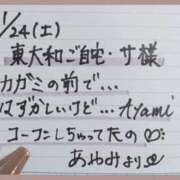 1/24(土)
東大和ご自宅・サ様
カガミの前で…
はずかしいけど…Ayami
コーフンしちゃってたの♡
あやみより